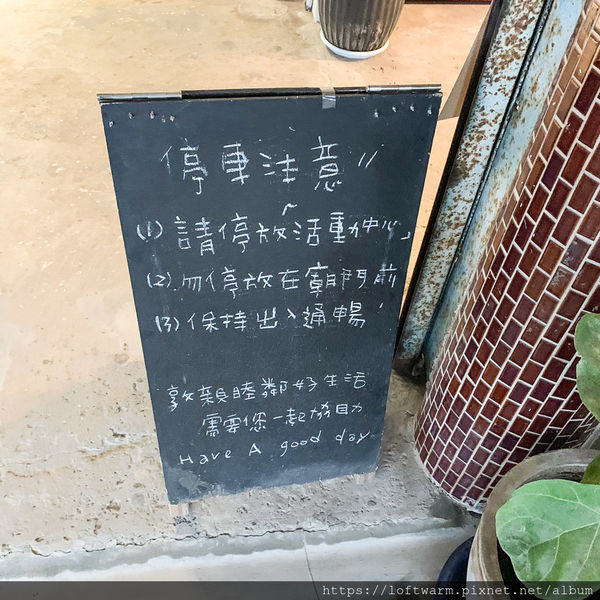 停車注意〃
(1) 請停放「活動中心」
(2) 勿停放在廟門前
(3) 保持出入通暢
敦親睦鄰好生活
需要您一起協力
Have A good day
https://loftwarm.pixnet.net/album